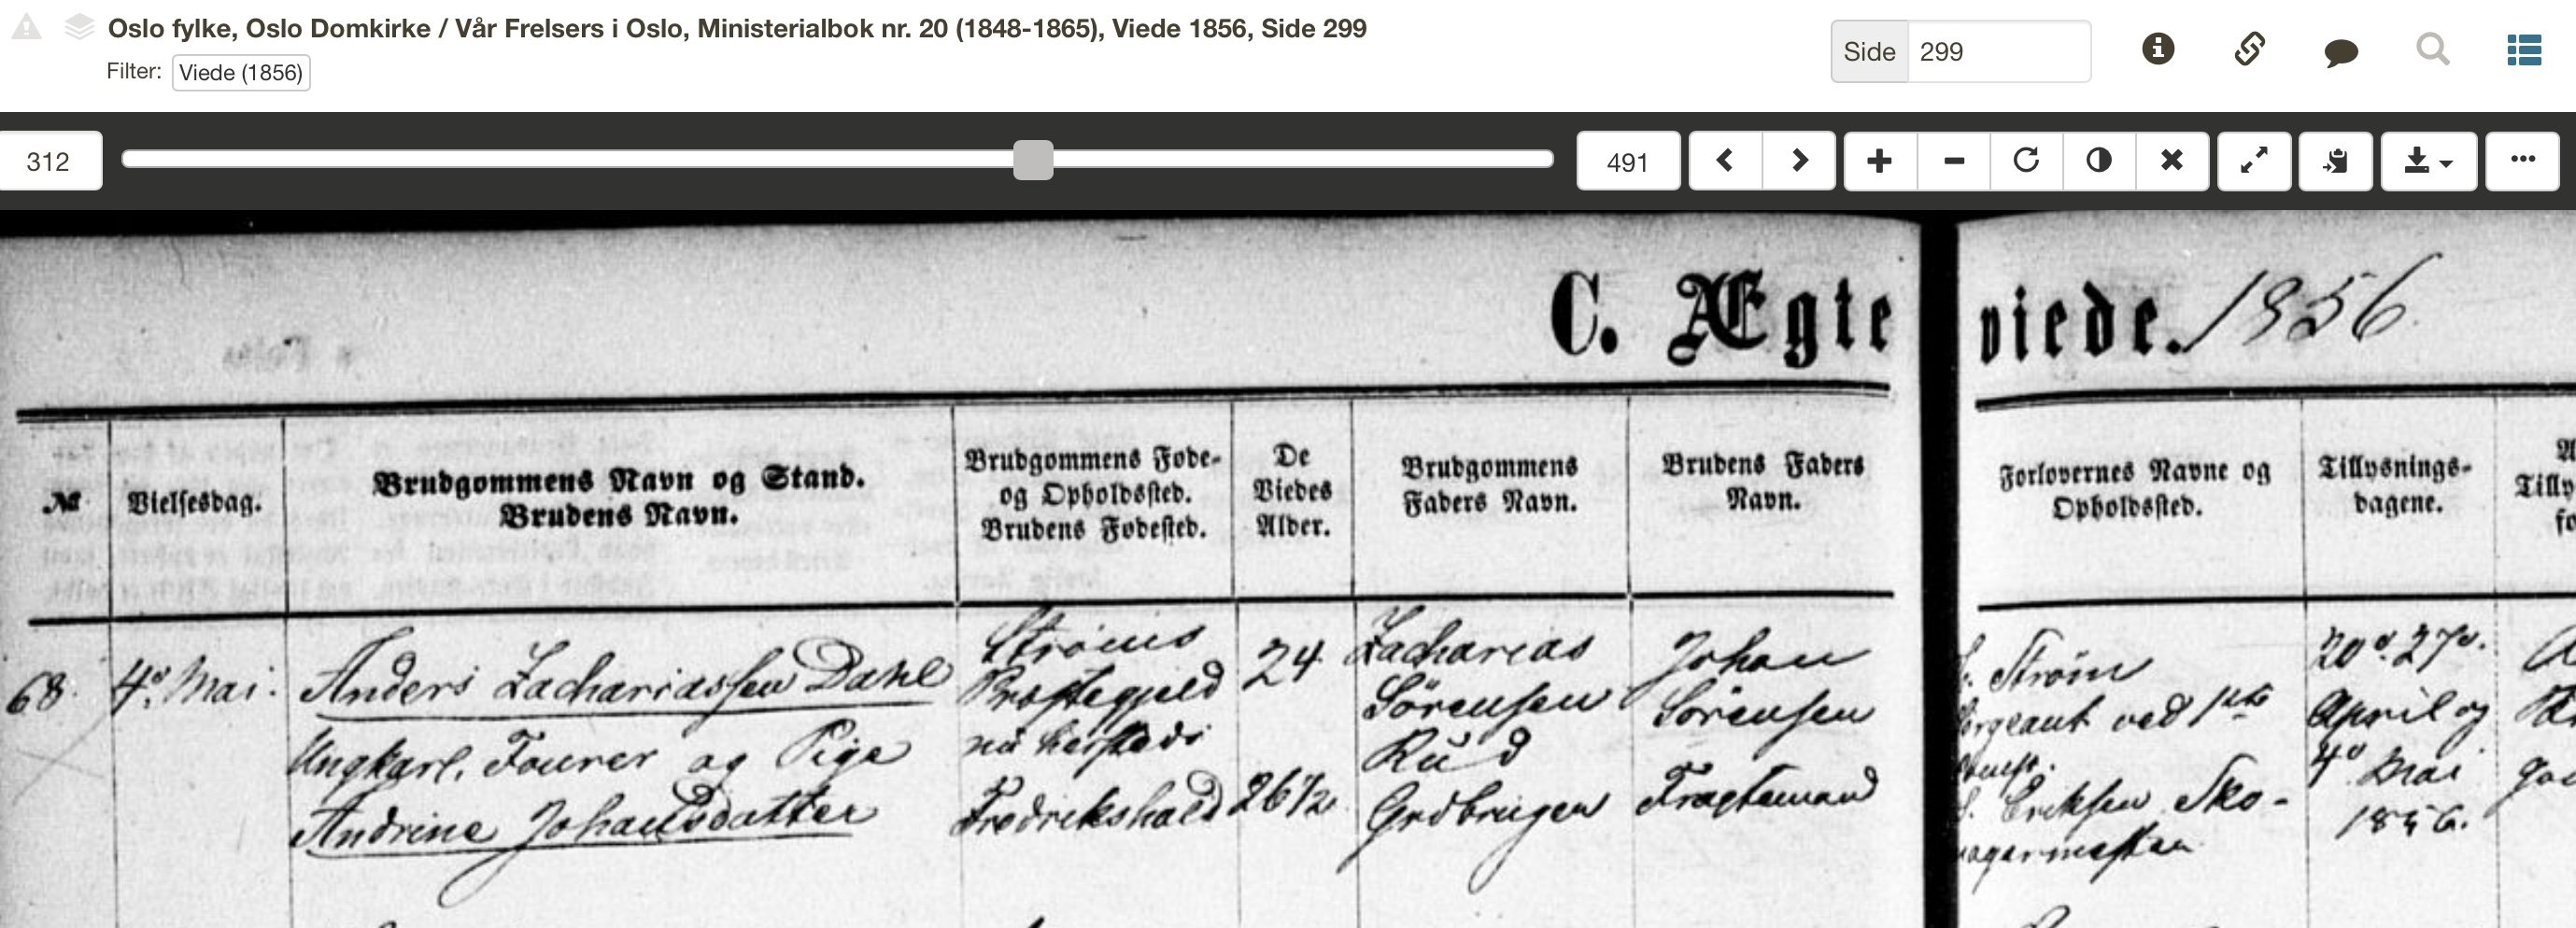 Oslo fylke, Oslo Domkirke / Vår Frelsers i Oslo, Ministerialbok nr. 20 (1848-1865), Viede 1856, Side 299
Filter: Viede (1856)
Side 299
312
491
C. Ægte viede. 1856
№
Vielsesdag.
Brudgommens Navn og Stand.
Brudens Navn.
Brudgommens Føde-
og Opholdssted.
Brudens Fødested.
De
Viedes
Alder.
Brudgommens
Faders Navn.
Brudens Faders
Navn.
Forlovernes Navne og
Opholdssted.
Tillysnings-
dagene.
68.
4de Mai.
Anders Zachariassen Dahl
Ungkarl, Fourer og Pige
Andrine Johansdatter
Strøms
Præstegjeld
nu
Fredrikshald
24
26 1/2
Zacharias
Sörensen
Rud
Grdbruger
Johan
Sörensen
Fragtemand
Ström
ved
Eriksen Sko-
20de 27de
April og
4de Mai
1856.